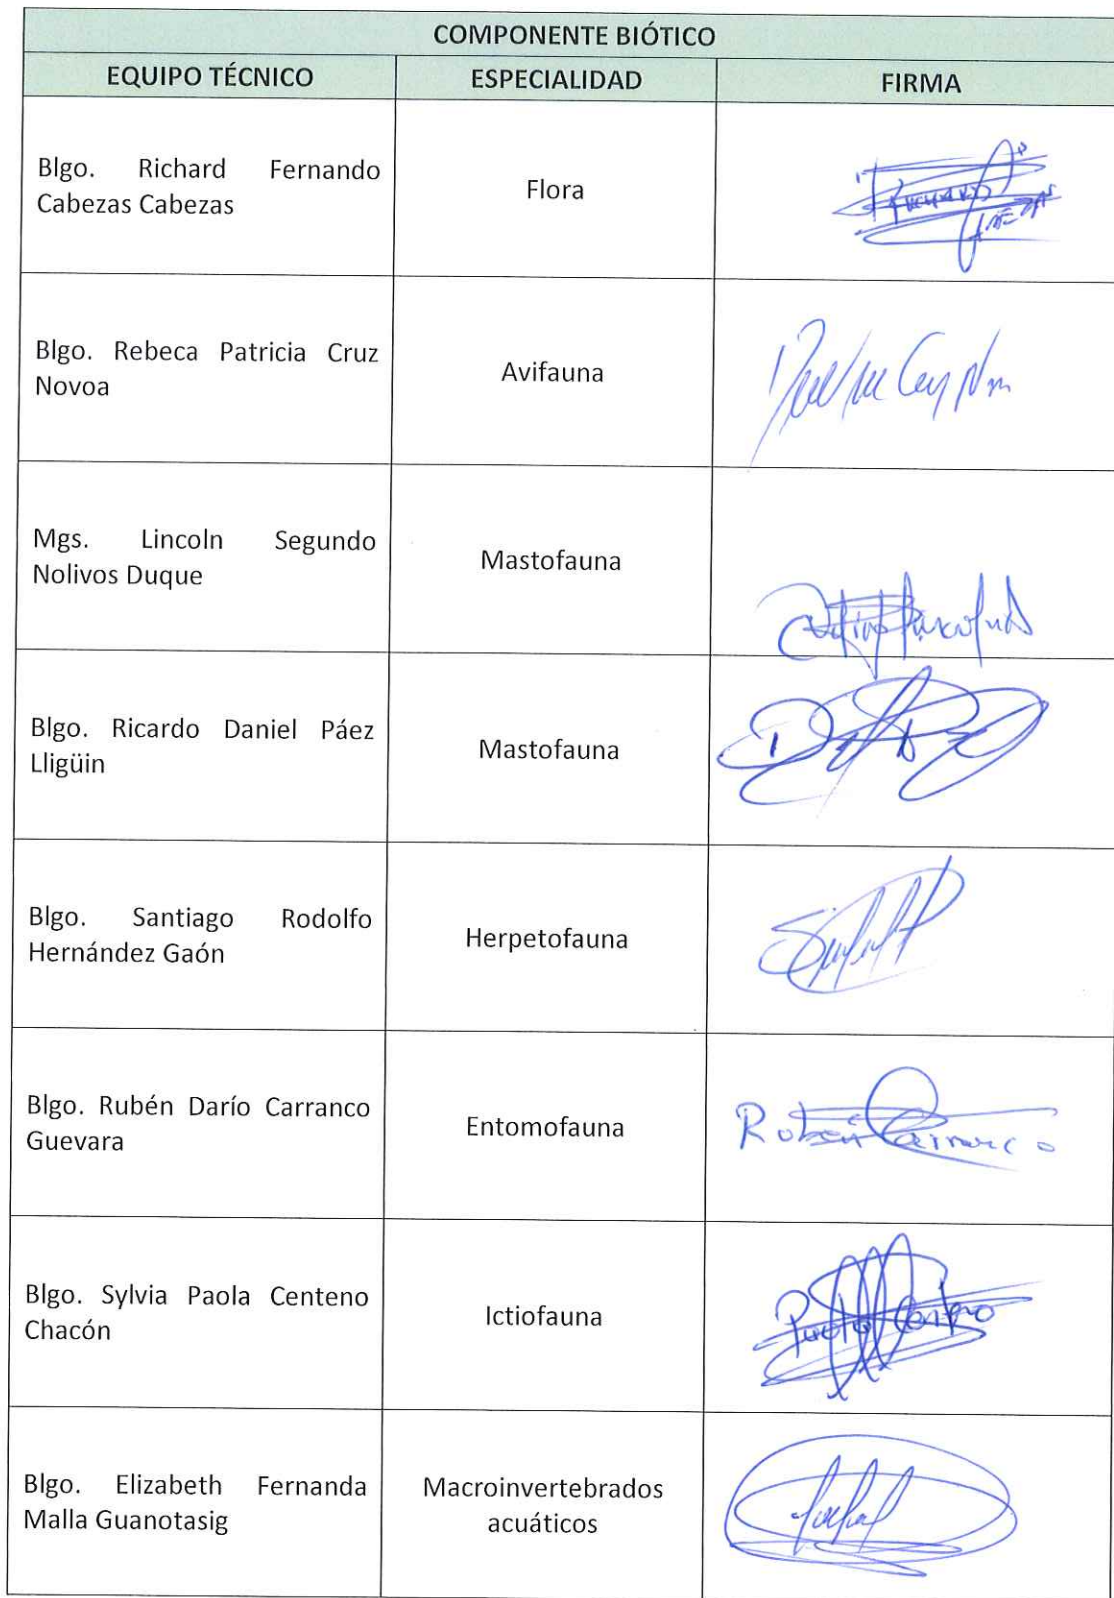 COMPONENTE BIÓTICO
EQUIPO TÉCNICO ESPECIALIDAD FIRMA
Blgo. Richard Fernando
Cabezas Cabezas
Flora
Blgo. Rebeca Patricia Cruz
Novoa
Avifauna
Mgs. Lincoln Segundo
Nolivos Duque
Mastofauna
Blgo. Ricardo Daniel Páez
Lligüin
Mastofauna
Blgo. Santiago Rodolfo
Hernández Gaón
Herpetofauna
Blgo. Rubén Darío Carranco
Guevara
Entomofauna
Rubén Carranco
Blgo. Sylvia Paola Centeno
Chacón
Ictiofauna
Paola Centeno
Blgo. Elizabeth Fernanda
Malla Guanotasig
Macroinvertebrados
acuáticos